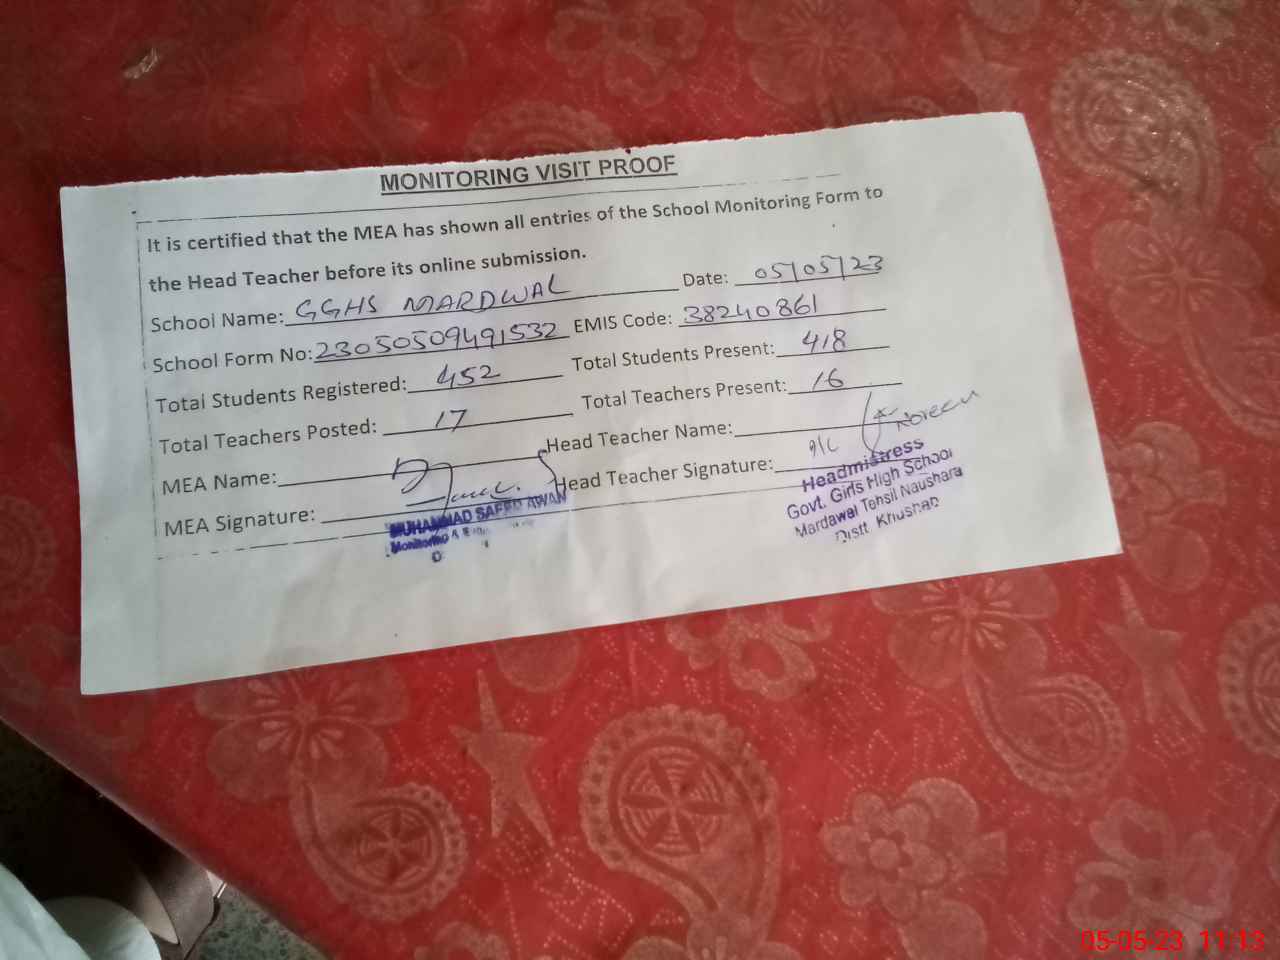 MONITORING VISIT PROOF
It is certified that the MEA has shown all entries of the School Monitoring Form to
the Head Teacher before its online submission.
School Name: GGHS MARDWAL Date: 05/05/23
School Form No: 23050509491532 EMIS Code: 38240861
Total Students Registered: 452 Total Students Present: 418
Total Teachers Posted: 17 Total Teachers Present: 16
MEA Name: Head Teacher Name: Noreen
MEA Signature: Head Teacher Signature: I/C
MUHAMMAD SAEED AWAN
Monitoring &
Headmistress
Govt. Girls High School
Mardawal Tehsil Naushara
Distt. Khushab
05-05-23 11:13